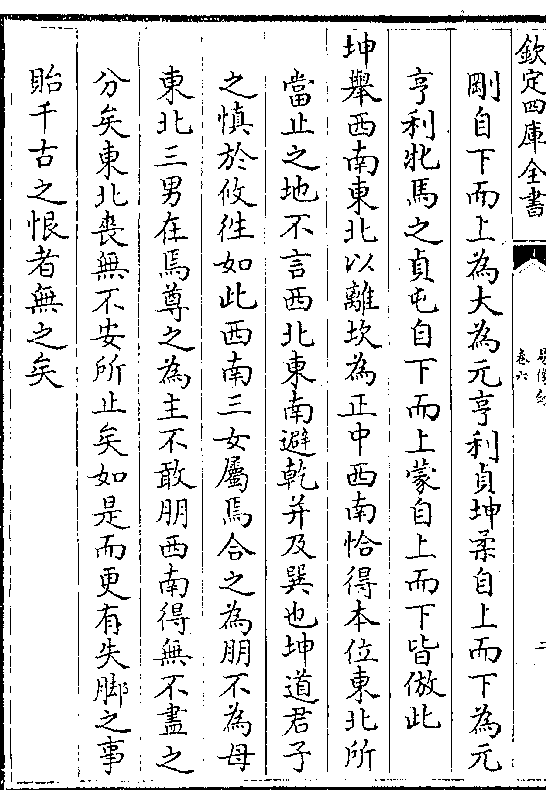 欽定四庫全書
卷六
剛自下而上為大為元亨利貞坤柔自上而下為元
亨利牝馬之貞屯自下而上蒙自上而下皆倣此
坤舉西南東北以離坎為正中西南恰得本位東北所
當止之地不言西北東南避乾并及巽也坤道君子
之慎於攸往如此西南三女屬焉合之為朋不為母
東北三男在焉尊之為主不敢朋西南得無不盡之
分矣東北喪無不安所止矣如是而更有失脚之事
貽千古之恨者無之矣